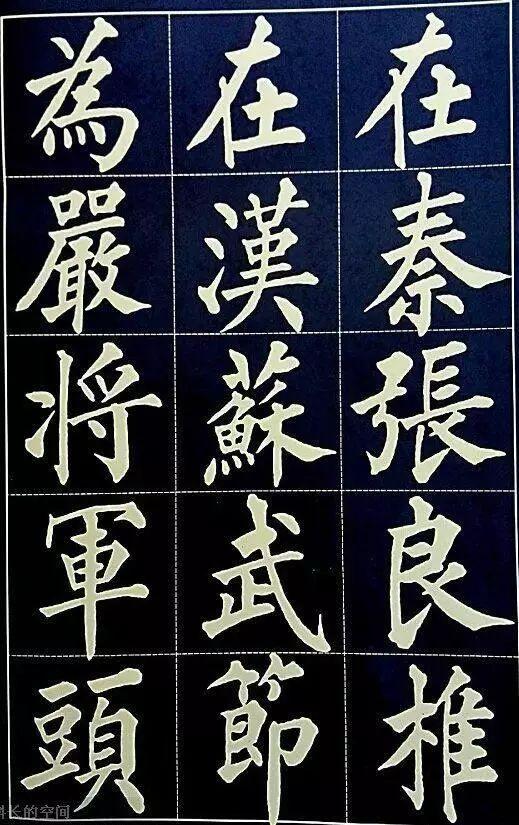 在秦張良椎
在漢蘇武節
為嚴将軍頭
长的空间